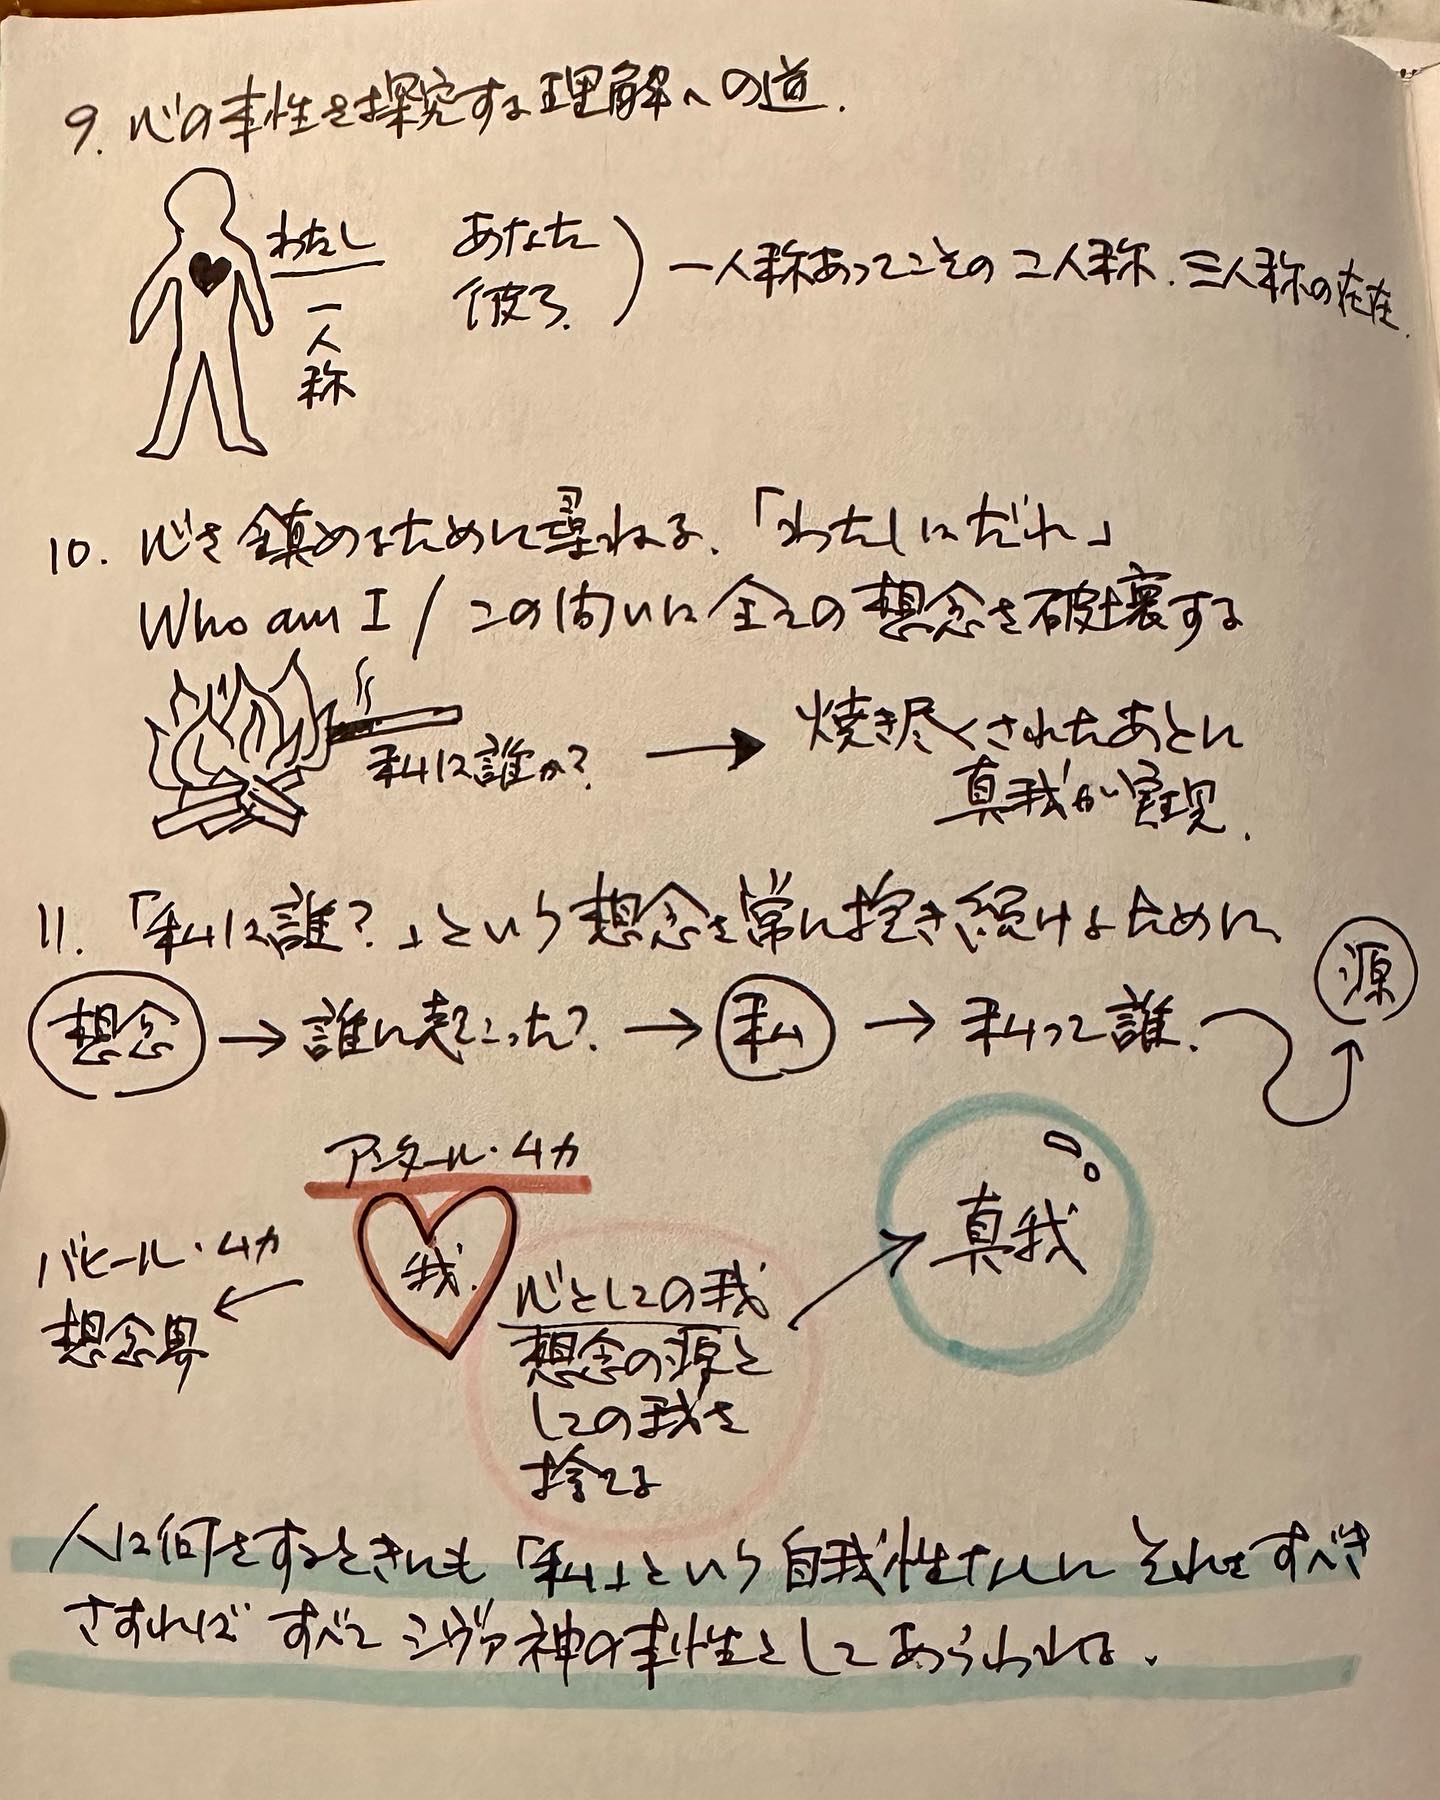 9. 心の本性を探究する理解への道.
わたし
一人称
あなた
彼ら
一人称あってこその二人称.三人称の存在.
10. 心を鎮めるために尋ねる.「わたしはだれ」
Who am I / この問いは全ての想念を破壊する
私は誰か?
焼き尽くされたあとに
真我が実現.
11.「私は誰?」という想念を常に抱き続けるために、
想念 → 誰に起こった? → 私 → 私って誰.
源
アンタール・ムカ
我.
真我
バヒール・ムカ
想念界
心としての我
想念の源と
しての我を
捨てる
人は何をするときにも「私」という自我性なしに それをすべき
さすれば すべて シヴァ神の本性として あらわれる.